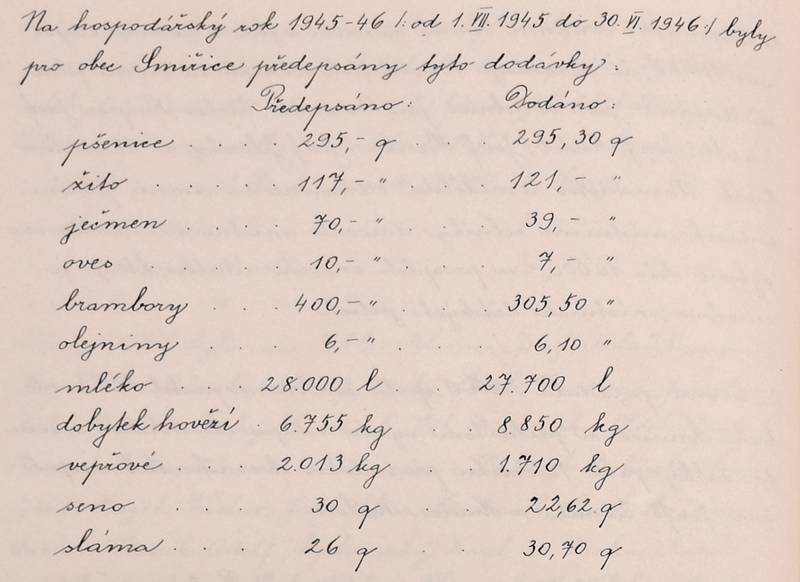 Na hospodářský rok 1945-46 /: od 1. VII. 1945 do 30. VI. 1946 :/ byly
pro obec Smiřice předepsány tyto dodávky:
Předepsáno: Dodáno:
pšenice . . . 295,- q . . 295,30 q
žito . . . . 117,- " . . 121,- "
ječmen . . . 70,- " . . 39,- "
oves . . . . 10,- " . . 7,- "
brambory . . . 400,- " . . 305,50 "
olejniny . . . 6,- " . . 6,10 "
mléko . . . 28.000 l . . 27.700 l
dobytek hovězí . 6.755 kg . . 8.850 kg
vepřové . . . 2.013 kg . . 1.710 kg
seno . . . . 30 q . . 22,62 q
sláma . . . . 26 q . . 30,70 q